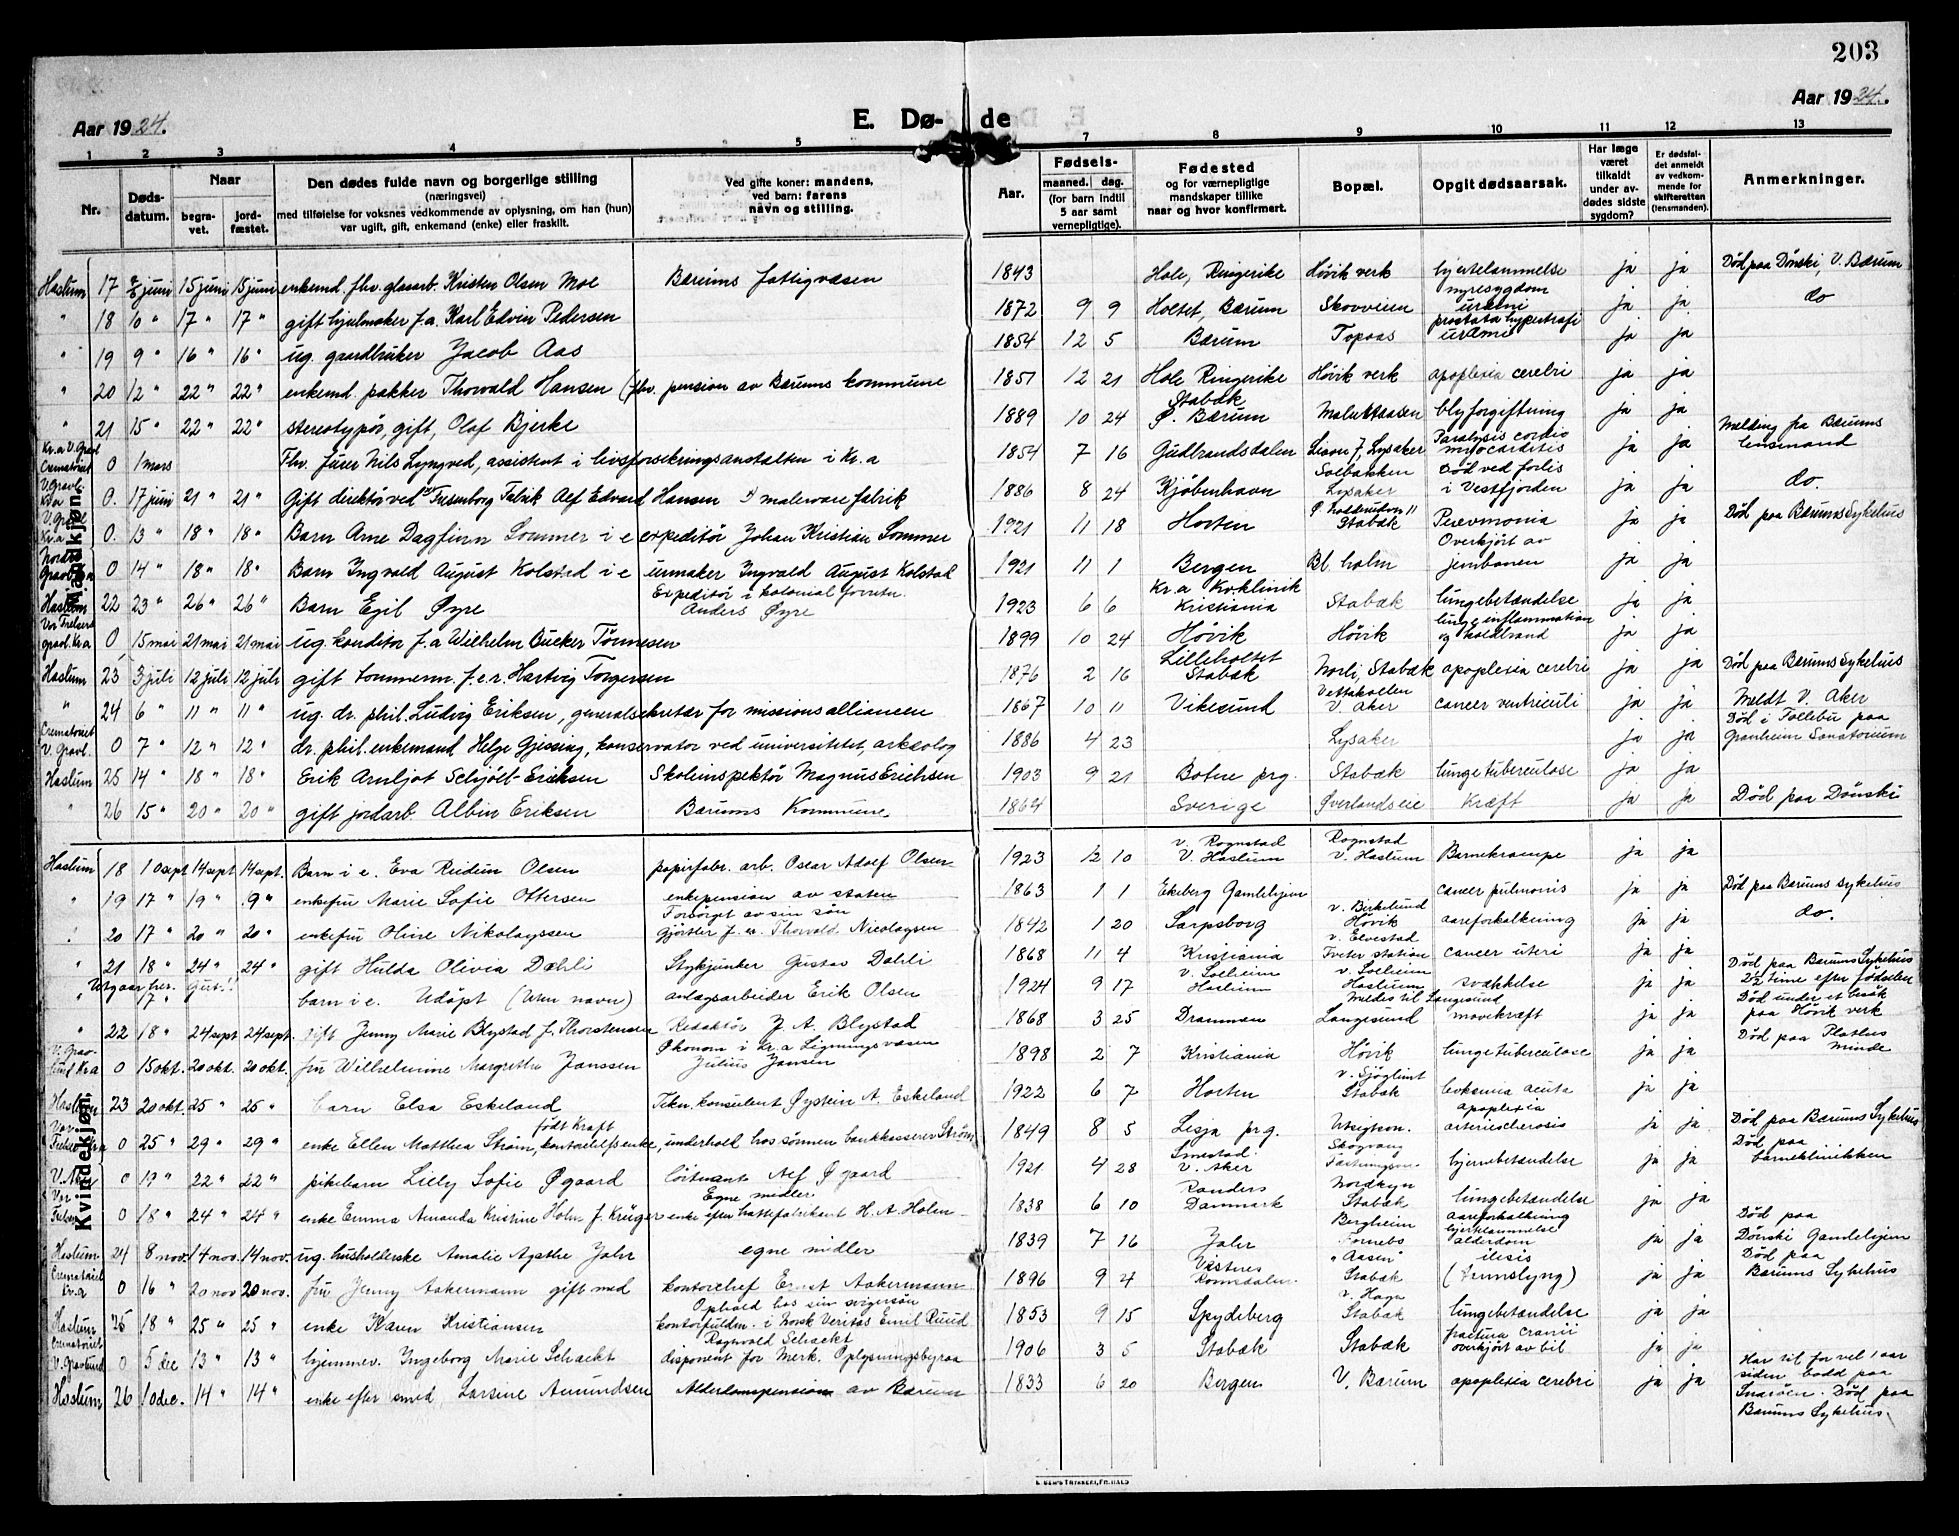 203
Aar 1924.
E. Dø- de
Aar 1924.
1 2 3 4 5 7 8 9 10 11 12 13
Nr.
Døds-datum.
Naar
begra-vet.
jord-fæstet.
Den dødes fulde navn og borgerlige stilling
(næringsvei)
med tilføielse for voksnes vedkommende av oplysning, om han (hun)
var ugift, gift, enkemand (enke) eller fraskilt.
Ved gifte koner: mandens,
ved barn: farens
navn og stilling.
Aar.
Fødsels-
maaned. dag.
(for barn indtil
5 aar samt
vernepligtige).
Fødested
og for værnepligtige
mandskaper tillike
naar og hvor konfirmert.
Bopæl.
Opgit dødsaarsak.
Har læge
været
tilkaldt
under av-
dødes sidste
sygdom?
Er dødsfal-
det anmeldt
av vedkom-
mende for
skifteretten
(lensmanden).
Anmerkninger.
Mandkjøn.
Haslum 17 juni 15 juni 15 juni enkemd. fhv. glasarb. Kristen Olsen Moe Bærums fattigvæsen 1843 Hole, Ringerike Høvik verk hjertelammelse ja ja Død paa Dønski, V. Bærum
" 18 10 " 17 " 17 " gift hjulmaker f.a. Karl Edvin Pedersen 1872 9 9 Holtet, Bærum Skovveien nyresygdom uræmi ja ja do
" 19 9 " 16 " 16 " ug. gaardbruker Jacob Aas 1854 12 5 Bærum Topaas prostata hypertrafi uræmi ja ja
" 20 12 " 22 " 22 " enkemd. pakker Thorvald Hansen (fhv. pension av Bærums kommune 1851 12 21 Hole Ringerike Høvik verk apoplexia cerebri ja ja
" 21 15 " 22 " 22 " stereotypør, gift, Olaf Bjerke 1889 10 24 Stabæk Ø. Bærum blyforgiftning ja ja
Kr.a V. Gravl. Crematoriet 0 1 mars Fhv. Jurer Nils Lyngved, assistent i livsforsikringsanstalten i Kr.a 1854 7 16 Gudbrandsdalen Lysaker Paralysis cordis myocarditis ja ja Melding fra Bærums lensmand
V. Gravl. Kr.a 0. 17 juni 21 " 21 " Gift direktør ved Fabrik Alf Edvard Hansen malevarefabrik 1886 8 24 Kjøbenhavn Solbakken Lysaker Død ved forlis i Vestfjorden ja ja do.
V. Gravl. Kr.a 0. 13 " 18 " 18 " Barn Arne Dagfinn Sommer i e expeditør Johan Kristian Sommer 1921 11 18 Horten Stabæk Pnevmonia ja ja Død paa Bærums Sykehus
Nordre Gravl. 0 14 " 18 " 18 " Barn Ingvald August Kolstad i e urmaker Ingvald August Kolstad 1921 11 1 Bergen Bl. holm Overkjørt av jernbanen ja ja
Haslum 22 23 " 26 " 26 " Barn Egil Øyre Expeditør i kolonial forretn. Anders Øyre 1923 6 6 Kr.a Kv.klinik Kristiania Stabæk lungebetændelse ja ja
Vor Frelsers grav. Kr.a 0 15 mai 21 mai 21 mai ug. konditor f.a Wilhelm Bucker Tønnesen 1899 10 24 Høvik Høvik lungeinflammation og koldbrand ja ja
Haslum 23 3 juli 12 juli 12 juli gift tømmerm. f.e.r. Hartvig Torgersen 1876 2 16 Lilleholtet Stabæk Norli, Stabæk apoplexia cerebri ja ja Død paa Bærums Sykehus
" 24 6 " 11 " 11 " ug. dr. phil. Ludvig Eriksen, generalsekretær for missionsalliancen 1867 10 11 Vikesund Vettakollen V. Aker cancer ventriculi ja ja Meldt V. Aker
Crematoriet V. Gravl. 0 7 " 12 " 12 " dr. phil. enkemand Helge Gjessing, konservator ved universitetet, arkeolog 1886 4 23 Lysaker ja ja Død i Follebu paa Granheim Sanatorium
Haslum 25 14 " 18 " 18 " Erik Arnljot Schjöll-Eriksen Skoleinspektør Magnus Erichsen 1903 9 21 Botne prg. Stabæk lungetuberculose ja ja
" 26 15 " 20 " 20 " gift jordarb Albin Eriksen Bærums Kommune 1864 Sverige Øverlandseie Kræft ja ja Død paa Dønski
Kvindekjøn.
Haslum 18 10 sept 14 sept 14 sept. Barn i e. Eva Reidun Olsen papirfabr. arb. Oscar Adolf Olsen 1923 12 10 v. Rognstad V. Haslum Rognstad v. Haslum Barnekrampe ja ja
" 19 17 " 19 " 9 " enkefru Marie Sofie Ottersen enkepension av staten 1863 1 1 Ekeberg Gamlehjem cancer pulmonis ja ja Død paa Bærums sykehus
" 20 17 " 20 " 20 " enkefru Oline Nikolayssen Forsørget av sin søn Gjørtler f. e. Thorvald Nicolaysen 1842 1 20 Sarpsborg v. Birkelund Høvik aareforkalkning ja ja do.
" 21 18 " 24 " 24 " gift Hulda Olivia Dæhli Stykjunker Gustav Dæhli 1868 11 4 Kristiania v. Elvestad Tveter station cancer uteri ja ja Død paa Bærums Sykehus
Utgaar her. " 17 " barn i e. Udøpt (uten navn) anlægsarbeider Erik Olsen 1924 9 17 v. Solheim Haslum v. Solheim Haslum svækkelse ja ja 2½ time efter fødselen
" 22 18 " 24 sept 24 sept. gift Jenny Marie Blystad f. Thorstensen Redaktør J. A. Blystad 1868 3 25 Drammen Meldes til Langesund Langesund mavekræft ja ja Død under et besøk paa Høvik verk
V. Grav- lund Kr.a 0 15 okt. 20 okt. 20 okt. fru Wilhelmine Margrethe Janssen Økonom i Kr.a Ligningsvæsen Julius Jansen 1898 2 7 Kristiania Høvik lungetuberculose ja ja Død paa Plathes Minde
Haslum 23 20 okt. 25 " 25 " barn Elsa Eskeland Tekn. konsulent Øystein A. Eskeland 1922 6 7 Horten v. Sjøglimt Stabæk leukæmia acuta ja ja
Vor Frelser Kr.a 0 25 " 29 " 29 " enke Ellen Matthea Strøm, født Kraft underhold hos sønnen bankkasserer Strøm 1849 8 5 Lesja prg. Utsigten. apoplexia arteriosclerosis ja ja Død paa Bærums Sykehus
V. Aker 0 19 " 22 " 22 " pikebarn Lilly Sofie Øgaard löitnant Alf Øgaard 1921 4 28 Smestad. V. Aker Skogvang hjernebetændelse ja ja Død paa barneklinikken
Vor Frelser 0 18 " 24 " 24 " enke Emma Amanda Kristine Holm f. Krüger Egne midler enke efter hattefabrikant H. A. Holm 1838 6 10 Randers Danmark Stabæk lungebetændelse ja ja
Haslum 24 8 nov. 14 nov. 14 nov. ug. husholderske Amalie Agathe Jahr egne midler 1839 7 16 Jahr Bergheim Fornebo aareforkalkning hjertelammelse alderdom ja ja Død paa Dønski Gamlehjem
Crematoriet Kr.a 0 16 " 20 nov 20 nov. fru Jenny Aakermann gift med kontorchef Ernst Aakermann 1896 9 4 Vestnes Romsdalen. "Aasen" Stabæk ilesis (tarmslyng) ja ja Død paa Bærums Sykehus
Haslum 25 18 " 25 " 25 " enke Karen Kristiansen Ophold hos sin svigersøn kontorfuldm. i Norsk Veritas Emil Ruud 1853 9 15 Spydeberg v. Haga Stabæk lungebetændelse ja ja
Crematoriet V. Gravlund 0 5 dec 13 " 13 " hjemmev. Ingeborg Marie Schackt Ragnvald Schackt disponent for Merk. Oplysningsbyraa 1906 3 5 Stabæk Stabæk fractura cranii overkjørt av bil ja ja
Haslum 26 10 dec. 14 " 14 " enke efter smed, Larsine Amundsen Alderdomspension av Bærum 1833 6 20 Bergen V. Bærum apoplexia cerebri ja ja Har til for vel 1 aar siden bodd paa Snarøen. Død paa Bærums Sykehus.